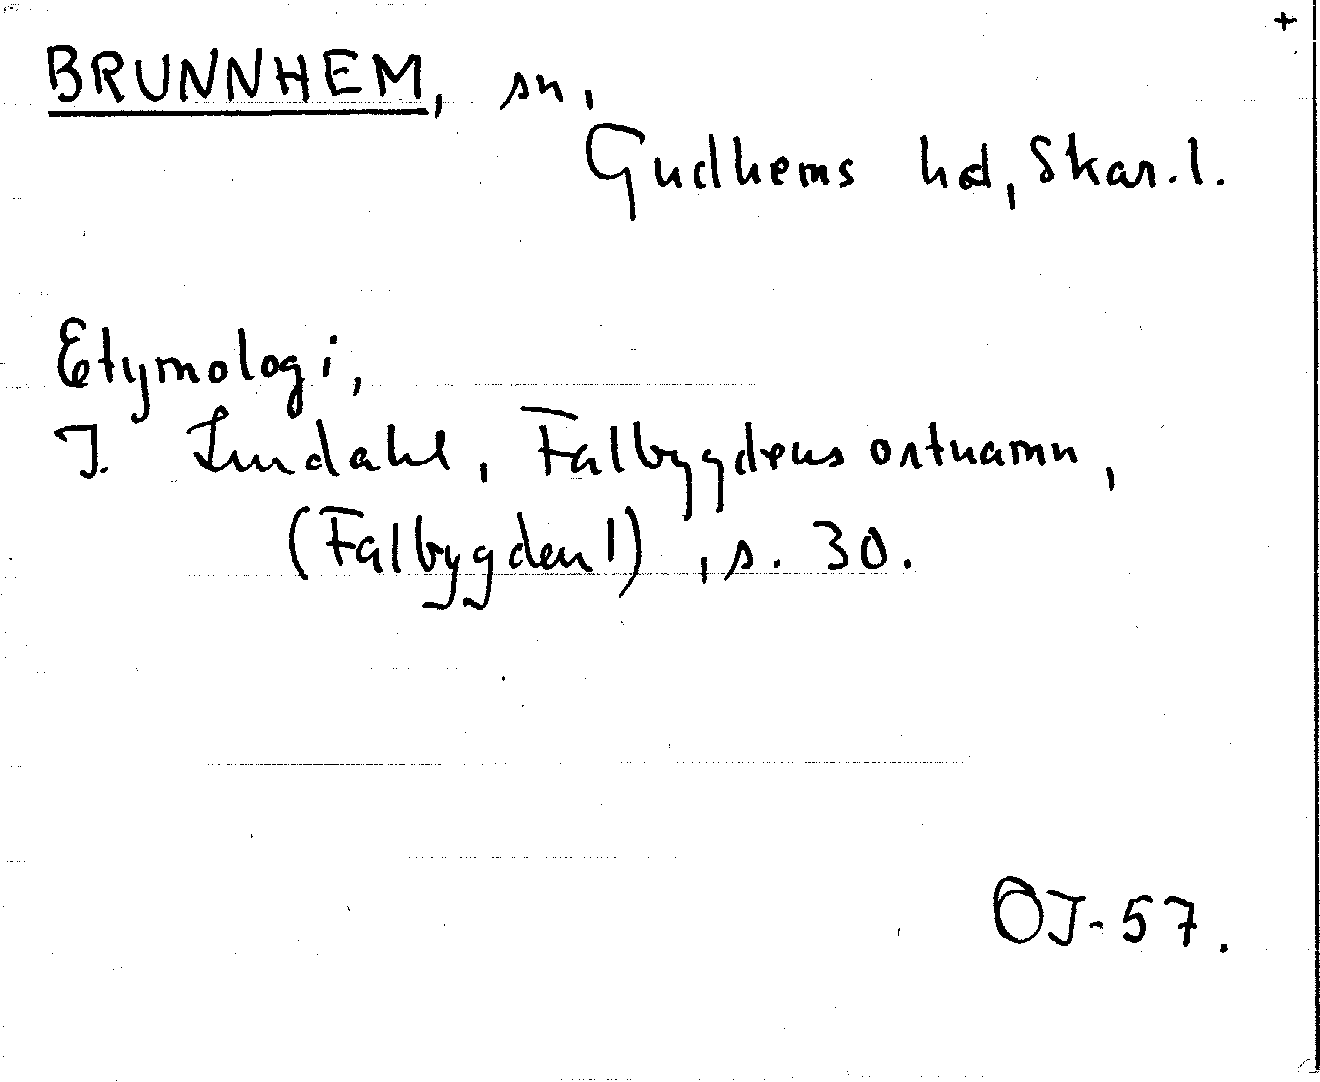 +
BRUNNHEM, sn,
Gudhems hd, Skar. l.
Etymologi,
I. Lindahl, Falbygdens ortnamn,
(Falbygden 1), s. 30.
OJ-57.